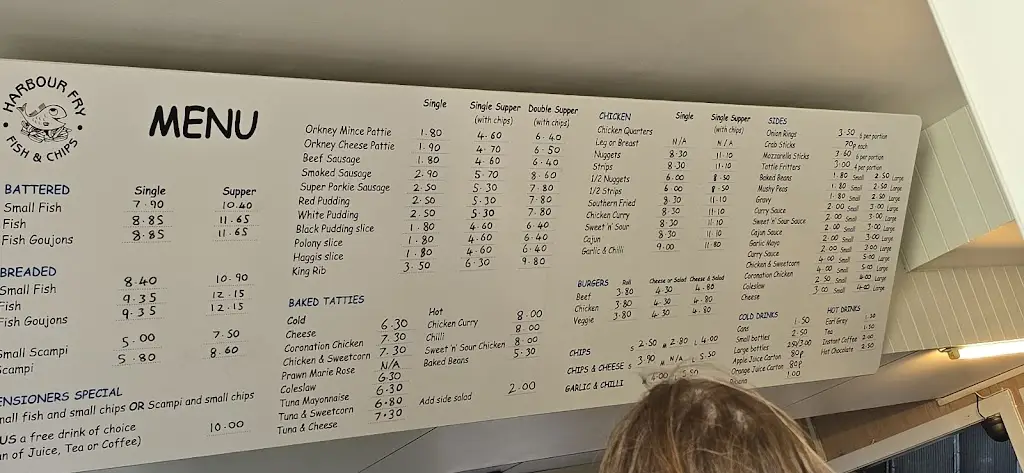 HARBOUR FRY
FISH & CHIPS
MENU
BATTERED Single Supper
Small Fish 7.90 10.40
Fish 8.85 11.65
Fish Goujons 8.85 11.65
BREADED
Small Fish 8.40 10.90
Fish 9.35 12.15
Fish Goujons 9.35 12.15
Small Scampi 5.00 7.50
Scampi 5.80 8.60
ENSIONERS SPECIAL
mall fish and small chips OR Scampi and small chips
US a free drink of choice 10.00
an of Juice, Tea or Coffee)
Single Single Supper Double Supper
(with chips) (with chips)
Orkney Mince Pattie 1.80 4.60 6.40
Orkney Cheese Pattie 1.90 4.70 6.50
Beef Sausage 1.80 4.60 6.40
Smoked Sausage 2.90 5.70 8.60
Super Porkie Sausage 2.50 5.30 7.80
Red Pudding 2.50 5.30 7.80
White Pudding 2.50 5.30 7.80
Black Pudding slice 1.80 4.60 6.40
Polony slice 1.80 4.60 6.40
Haggis slice 1.80 4.60 6.40
King Rib 3.50 6.30 9.80
BAKED TATTIES
Cold
Cheese 6.30
Coronation Chicken 7.30
Chicken & Sweetcorn 7.30
Prawn Marie Rose N/A
Coleslaw 6.30
Tuna Mayonnaise 6.30
Tuna & Sweetcorn 6.80
Tuna & Cheese 7.30
Hot
Chicken Curry 8.00
Chilli 8.00
Sweet 'n' Sour Chicken 8.00
Baked Beans 5.30
Add side salad 2.00
CHICKEN Single Single Supper
(with chips)
Chicken Quarters
Leg or Breast N/A N/A
Nuggets 8.30 11.10
Strips 8.30 11.10
1/2 Nuggets 6.00 8.50
1/2 Strips 6.00 8.50
Southern Fried 8.30 11.10
Chicken Curry 8.30 11.10
Sweet 'n' Sour 8.30 11.10
Cajun 8.30 11.10
Garlic & Chilli 9.00 11.80
BURGERS Roll Cheese or Salad Cheese & Salad
Beef 3.80 4.30 4.80
Chicken 3.80 4.30 4.80
Veggie 3.80 4.30 4.80
CHIPS S 2.50 M 2.80 L 4.00
CHIPS & CHEESE S 3.90 M N/A L 5.50
GARLIC & CHILLI 4.00 5.50
SIDES
Onion Rings 3.50 6 per portion
Crab Sticks 70p each
Mozzarella Sticks 3.60 6 per portion
Tattie Fritters 3.00 4 per portion
Baked Beans 1.80 Small 2.50 Large
Mushy Peas 1.80 Small 2.50 Large
Gravy 1.80 Small 2.50 Large
Curry Sauce 2.00 Small 3.00 Large
Sweet 'n' Sour Sauce 2.00 Small 3.00 Large
Cajun Sauce 2.00 Small 3.00 Large
Garlic Mayo 2.00 Small 3.00 Large
Curry Sauce 2.00 Small 3.00 Large
Chicken & Sweetcorn 4.00 Small 5.00 Large
Coronation Chicken 4.00 Small 5.00 Large
Coleslaw 2.50 Small 3.50 Large
Cheese 3.00 Small 4.00 Large
COLD DRINKS
Cans 1.50
Small bottles 2.50
Large bottles
Apple Juice Carton 80p
Orange Juice Carton 80p
Ribena 1.00
HOT DRINKS
Earl Grey 1.50
Tea 1.50
Instant Coffee 2.00
Hot Chocolate 2.50